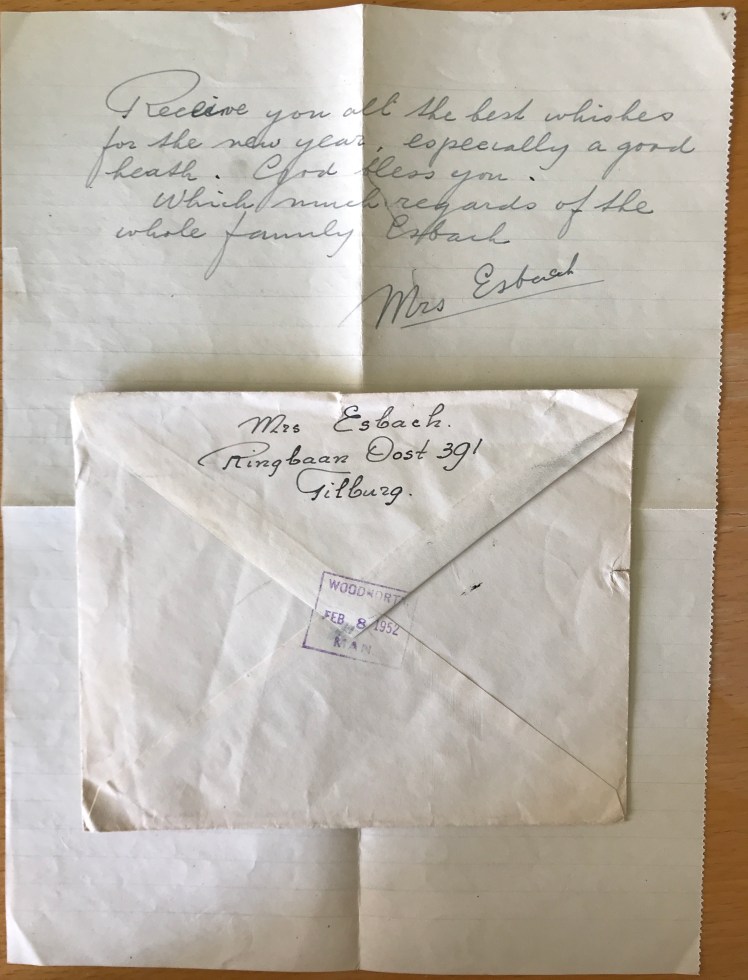 Receive you all the best whishes
for the new year, especially a good
heath. God bless you.
Which much regards of the
whole family Esbach
Mrs Esbach
Mrs Esbach.
Ringbaan Oost 391
Tilburg.
WOODNORTH
FEB 8 1952
MAN